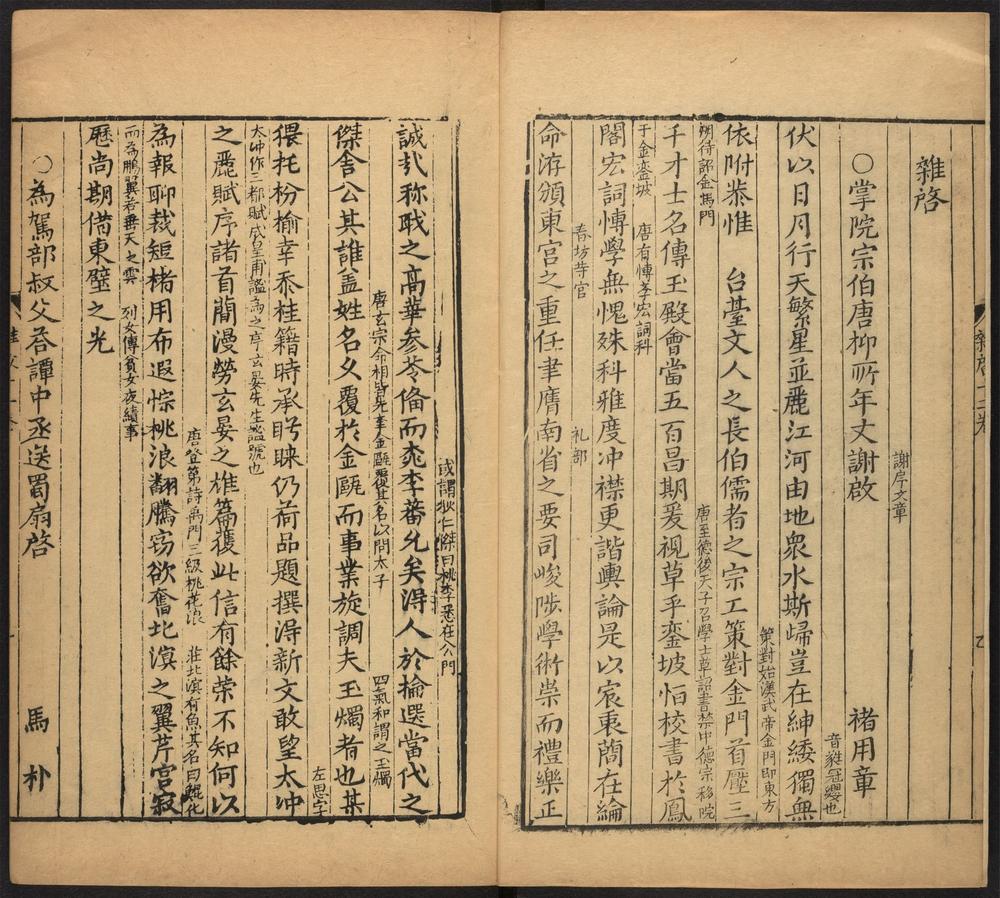 雜啓
謝序文章
○掌院宗伯唐抑所年丈謝啟 褚用章
音蕤冠纓也
伏以日月行天繁星並麗江河由地衆水斯歸豈在紳緌獨無
策對始漢武帝金門即東方
依附恭惟 台臺文人之長伯儒者之宗工策對金門首壓三
朔待詔金馬門 唐至德後天子召學士草詔書禁中德宗移院
千才士名傳玉殿會當五百昌期爰視草乎鑾坡怕校書於鳳
于金鑾坡 唐有博學宏詞科
閣宏詞博學無愧殊科雅度冲襟更諧輿論是以宸衷簡在綸
春坊寺官 礼部
命洊頒東宮之重任聿膺南省之要司峻陟學術崇而禮樂正
雜啓十二卷
或謂狄仁傑曰桃李悉在公門
誠孔称戢之高華参苓俻而桃李蕃允矣淂人於掄選當代之
唐玄宗命相皆先書金甌覆其名以問太子 四氣和謂之玉燭
傑舍公其誰盖姓名久覆於金甌而事業旋調夫玉燭者也某
左思字
猥托枌榆幸忝桂籍時承盻睞仍荷品題撰淂新文敢望太冲
太冲作三都賦成皇甫謐為之序玄晏先生謐號也
之麗賦序諸首蕳漫勞玄晏之雄篇獲此信有餘榮不知何以
唐登第詩禹門三級桃花浪 莊北溟有魚其名曰鯤化
為報聊裁短楮用布遐悰桃浪翻騰窃欲奮北溟之翼芹宫寂
而為鵬翼若垂天之雲 列女傳貧女夜績事
歷尚期借東壁之光
○為駕部叔父荅譚中丞送蜀扇啓 馬朴